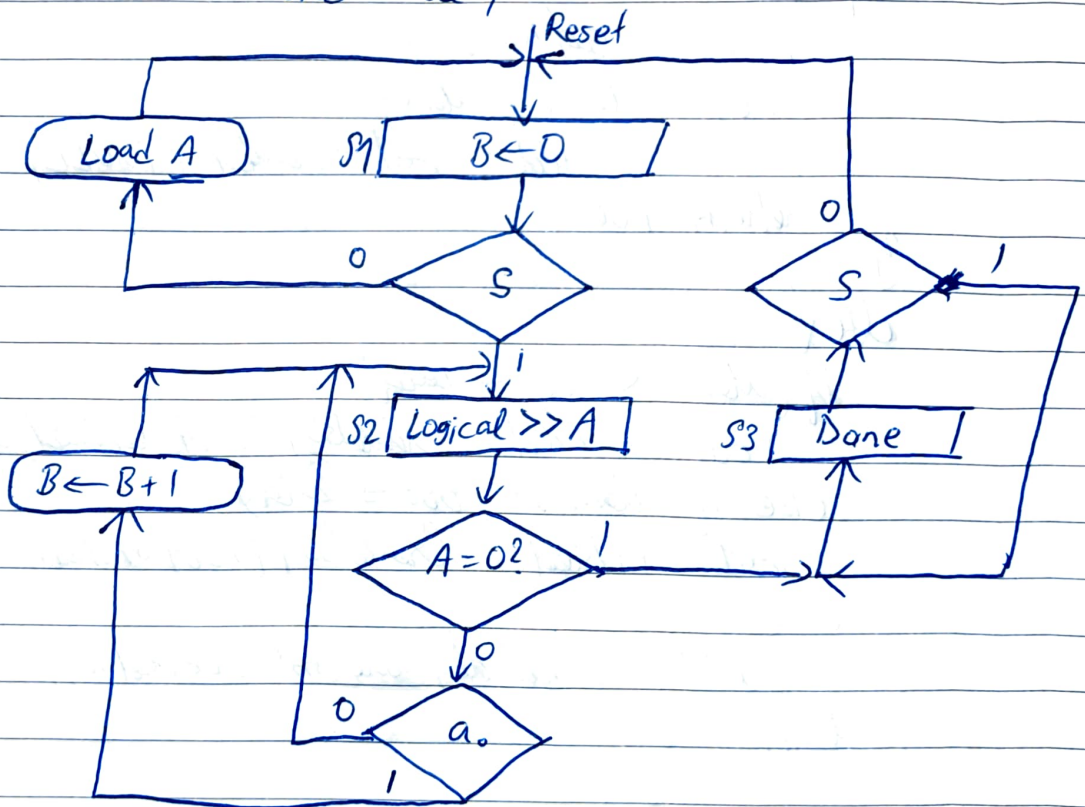 Reset
Load A
S1
B ← 0
0
S
0
S
1
1
S2
Logical >> A
S3
Done
B ← B + 1
A = 0?
1
0
0
a₀
1